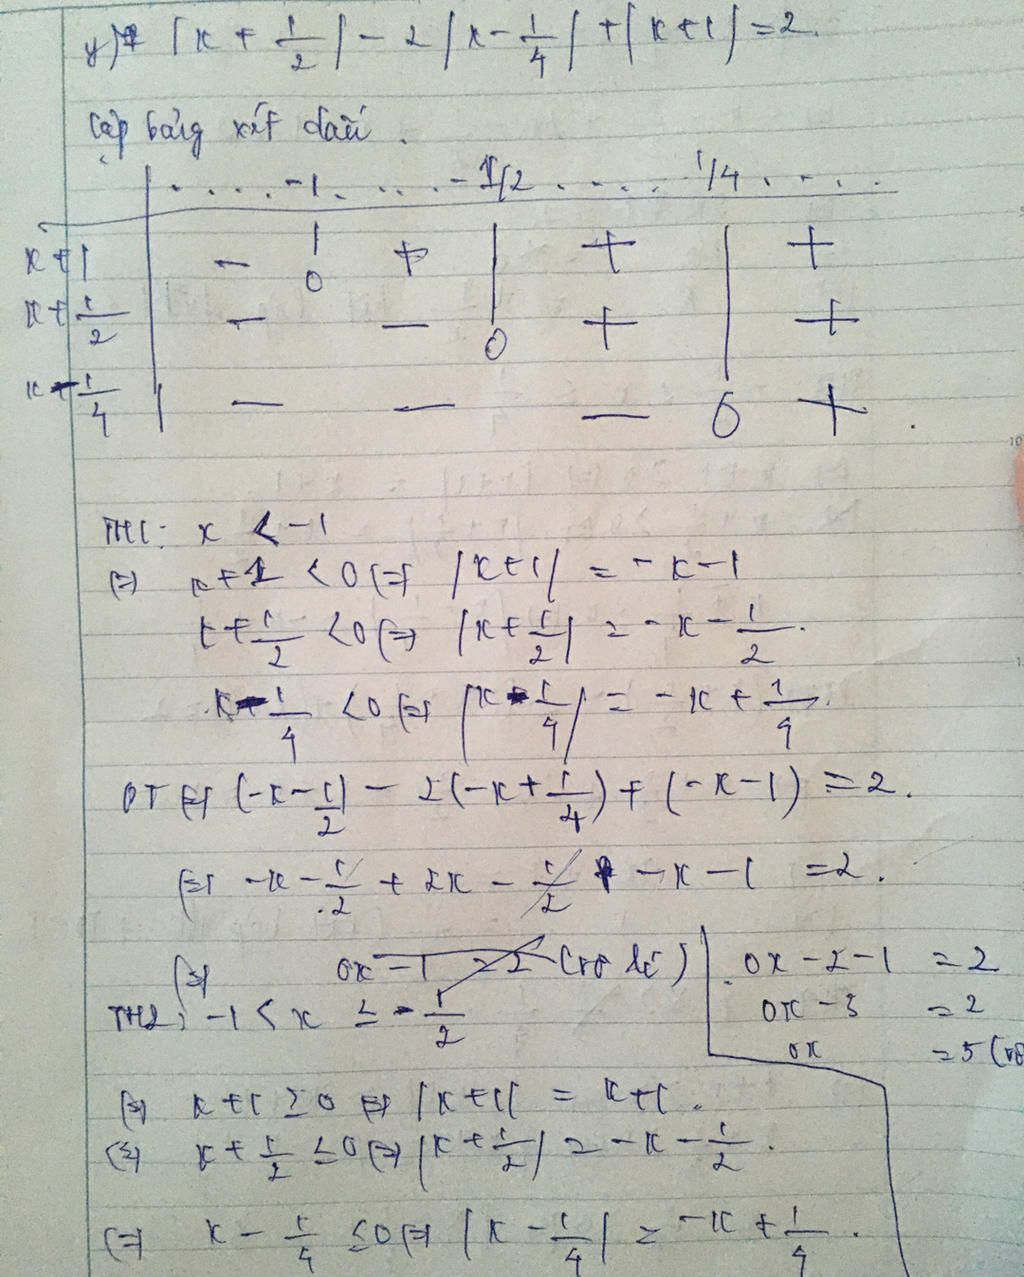 y) |x + 1/2| - 2|x - 1/4| + |x+1| = 2.
Lập bảng xét dấu.
. . . . -1 . . . . -1/2 . . . . 1/4 . . . .
x+1 - 0 + | + | +
x+1/2 - - 0 + | +
x-1/4 - - - 0 +
TH1: x < -1
(=) x+1 < 0 (=) |x+1| = -x-1
x+1/2 < 0 (=) |x+1/2| = -x-1/2.
x-1/4 < 0 (=) |x-1/4| = -x+1/4.
PT (=) (-x-1/2) - 2(-x+1/4) + (-x-1) = 2.
(=) -x-1/2 + 2x - 1/2 - x - 1 = 2.
(=) 0x-1 = 2 (vô lí)
0x-2-1 = 2
0x-3 = 2
0x = 5 (vô
TH2: -1 < x ≤ -1/2
(=) x+1 ≥ 0 (=) |x+1| = x+1.
(=) x+1/2 ≤ 0 (=) |x+1/2| = -x-1/2.
(=) x-1/4 ≤ 0 (=) |x-1/4| = -x+1/4.